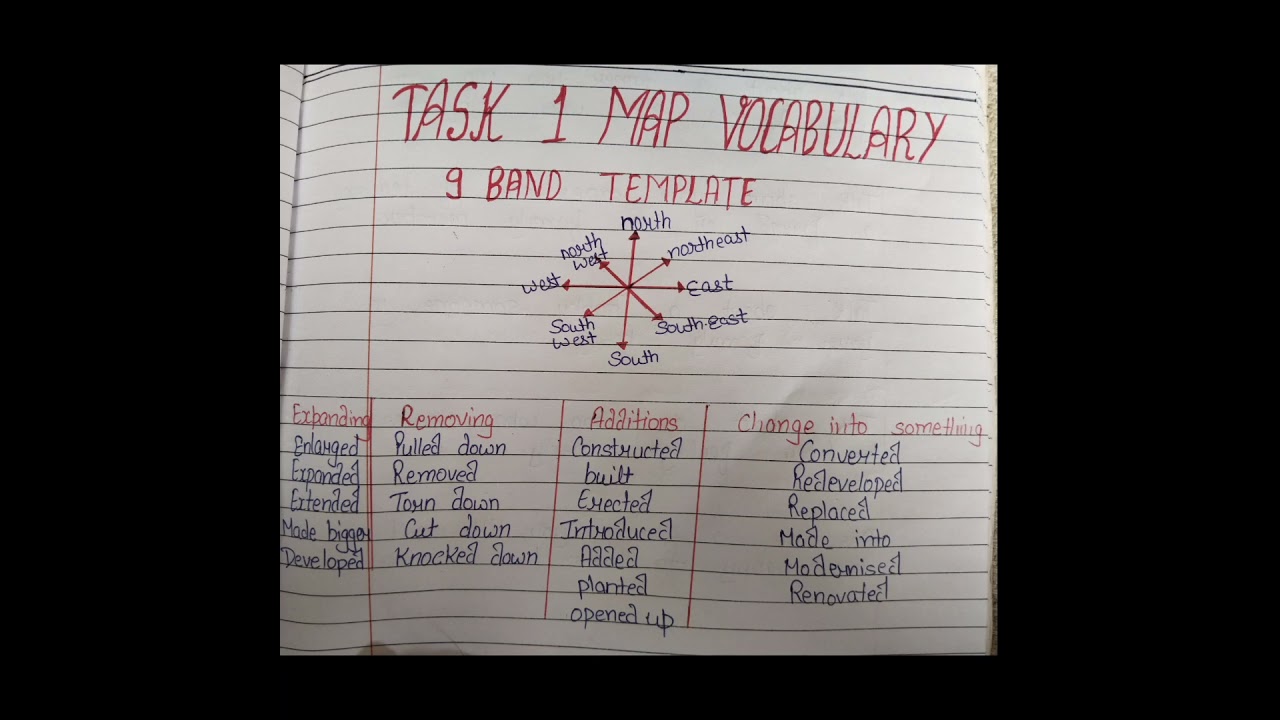 TASK 1 MAP VOCABULARY
9 BAND TEMPLATE
north
north west
northeast
west
East
South west
South-East
South
Expanding Removing Additions Change into something
Enlarged Pulled down Constructed Converted
Expanded Removed built Redeveloped
Extended Torn down Erected Replaced
Made bigger Cut down Introduced Made into
Developed Knocked down Added Modernised
planted Renovated
opened up